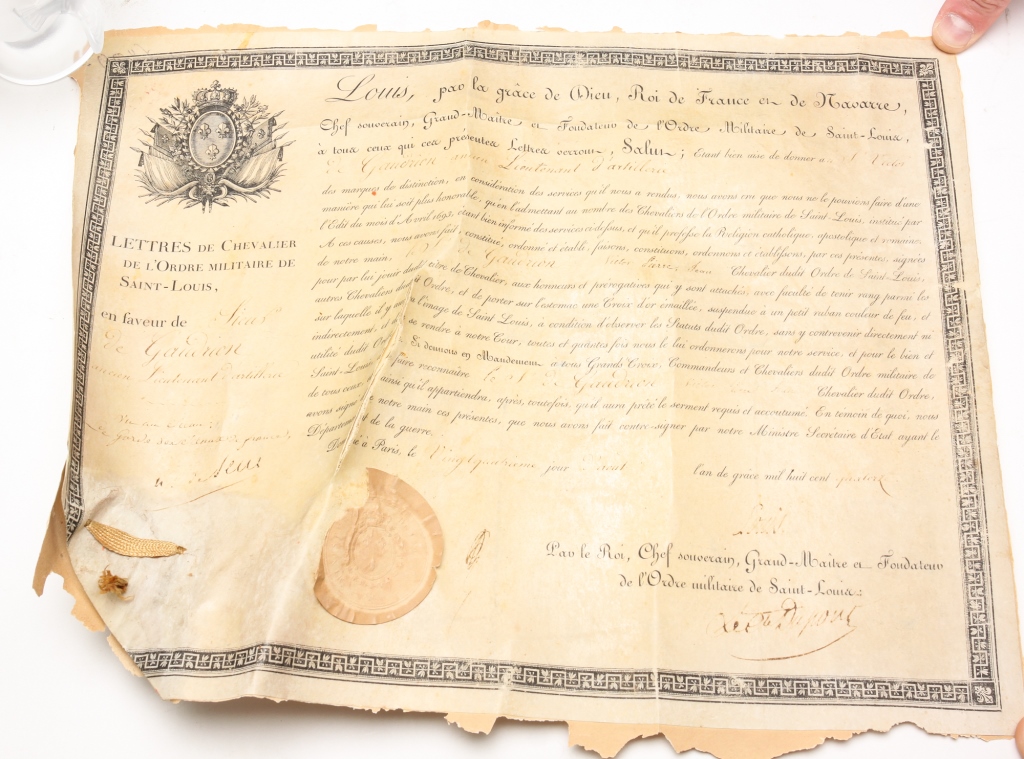 LETTRES DE CHEVALIER
DE L'ORDRE MILITAIRE DE
SAINT-LOUIS,
en faveur de Sieur
De Gaudrion
ancien Lieutenant d'artillerie
Louis, par la grâce de Dieu, Roi de France et de Navarre,
Chef souverain, Grand-Maître et Fondateur de l'Ordre Militaire de Saint-Louis,
à tous ceux qui ces présentes Lettres verront, Salut; Étant bien aise de donner au S. Victor
De Gaudrion ancien Lieutenant d'artillerie
des marques de distinction, en considération des services qu'il nous a rendus, nous avons cru que nous ne le pouvions faire d'une
manière qui lui soit plus honorable, qu'en l'admettant au nombre des Chevaliers de l'Ordre militaire de Saint-Louis, institué par
l'Édit du mois d'Avril 1693, étant bien informé des services ci-dessus, et qu'il professe la Religion catholique, apostolique et romaine.
A ces causes, nous avons fait, constitué, ordonné et établi, faisons, constituons, ordonnons et établissons, par ces présentes, signées
de notre main, De Gaudrion Victor Jean Chevalier dudit Ordre de Saint-Louis,
pour par lui jouir dudit titre de Chevalier, aux honneurs et prérogatives qui y sont attachés, avec faculté de tenir rang parmi les
autres Chevaliers dudit Ordre, et de porter sur l'estomac une Croix d'or émaillée, suspendue à un petit ruban couleur de feu, et
sur laquelle il y a l'image de Saint Louis, à condition d'observer les Statuts dudit Ordre, sans y contrevenir directement ne
indirectement, et de se rendre à notre Cour, toutes et quantes fois nous le lui ordonnerons pour notre service, et pour le bien et
utilité dudit Ord Si donnons en Mandement à tous Grands Croix, Commandeurs et Chevaliers dudit Ordre militaire de
Saint-Louis faire reconnaître le S. De Gaudrion Chevalier dudit Ordre,
de tous ceux ainsi qu'il appartiendra, après, toutefois, qu'il aura prêté le serment requis et accoutumé. En témoin de quoi, nous
avons signé de notre main ces présentes, que nous avons fait contre-signer par notre Ministre Secrétaire d'État ayant le
Département de la guerre.
Donné à Paris, le Vingt quatrième jour d'août l'an de grâce mil huit cent quatorze
Louis
Par le Roi, Chef souverain, Grand-Maître et Fondateur
de l'Ordre militaire de Saint-Louis:
Le Cte Dupont